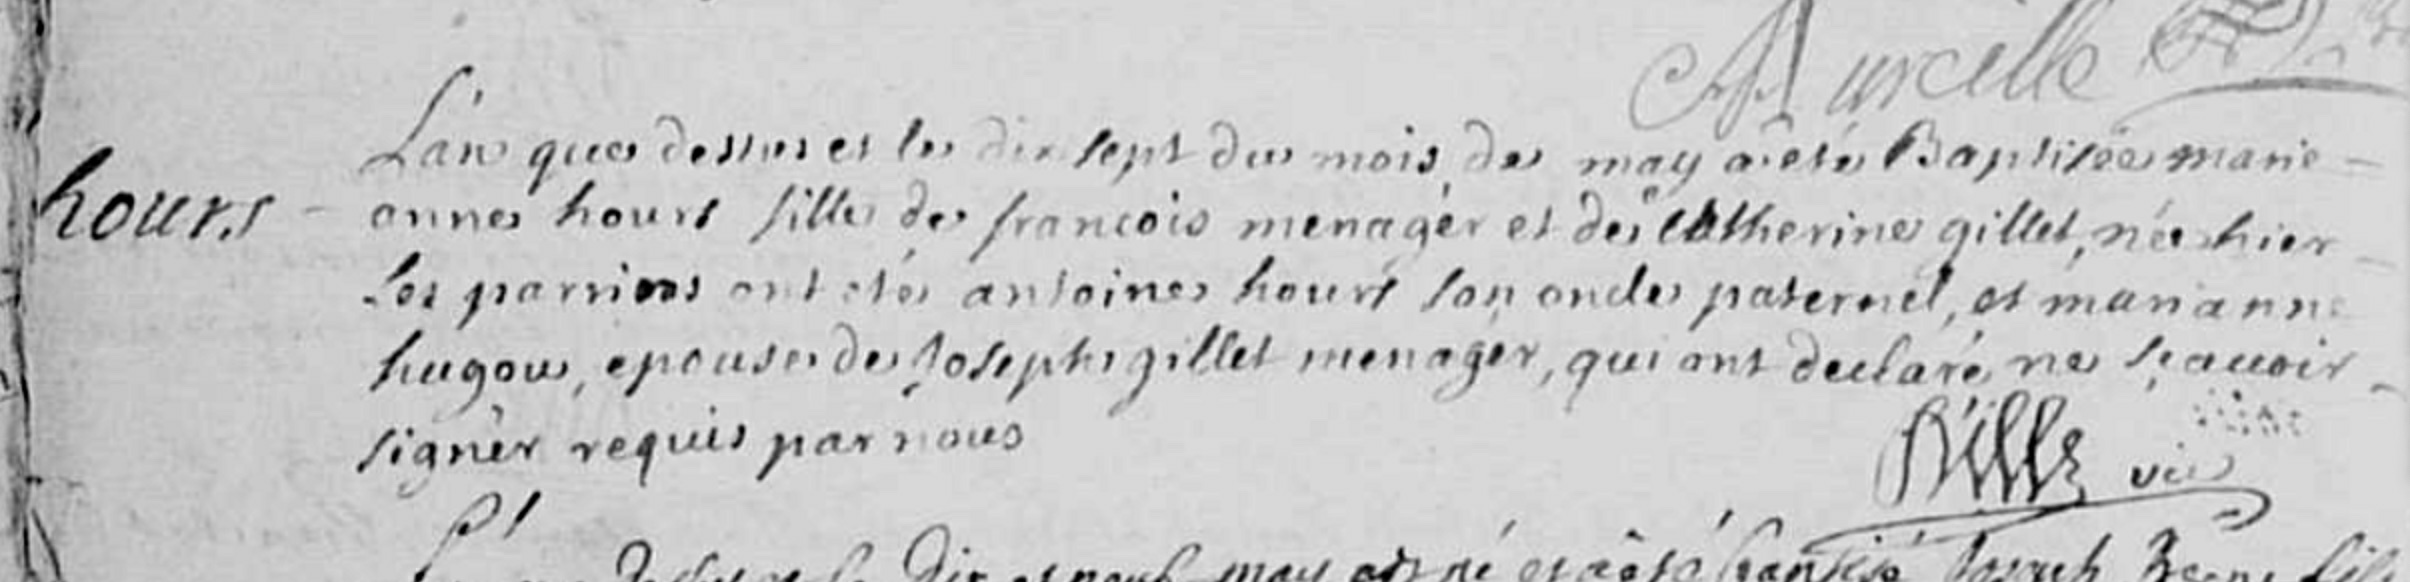 hours
L'an que dessus et le dix sept du mois de may a été Baptisée marie
anne hours fille de francois menagér et de catherine gillet, née hier
Les parrins ont etés antoine hours son oncle paternel, et marianne
hugou, epouse de Joseph gillet menagér, qui ont declaré ne sçauoir
signèr requis par nous
vic